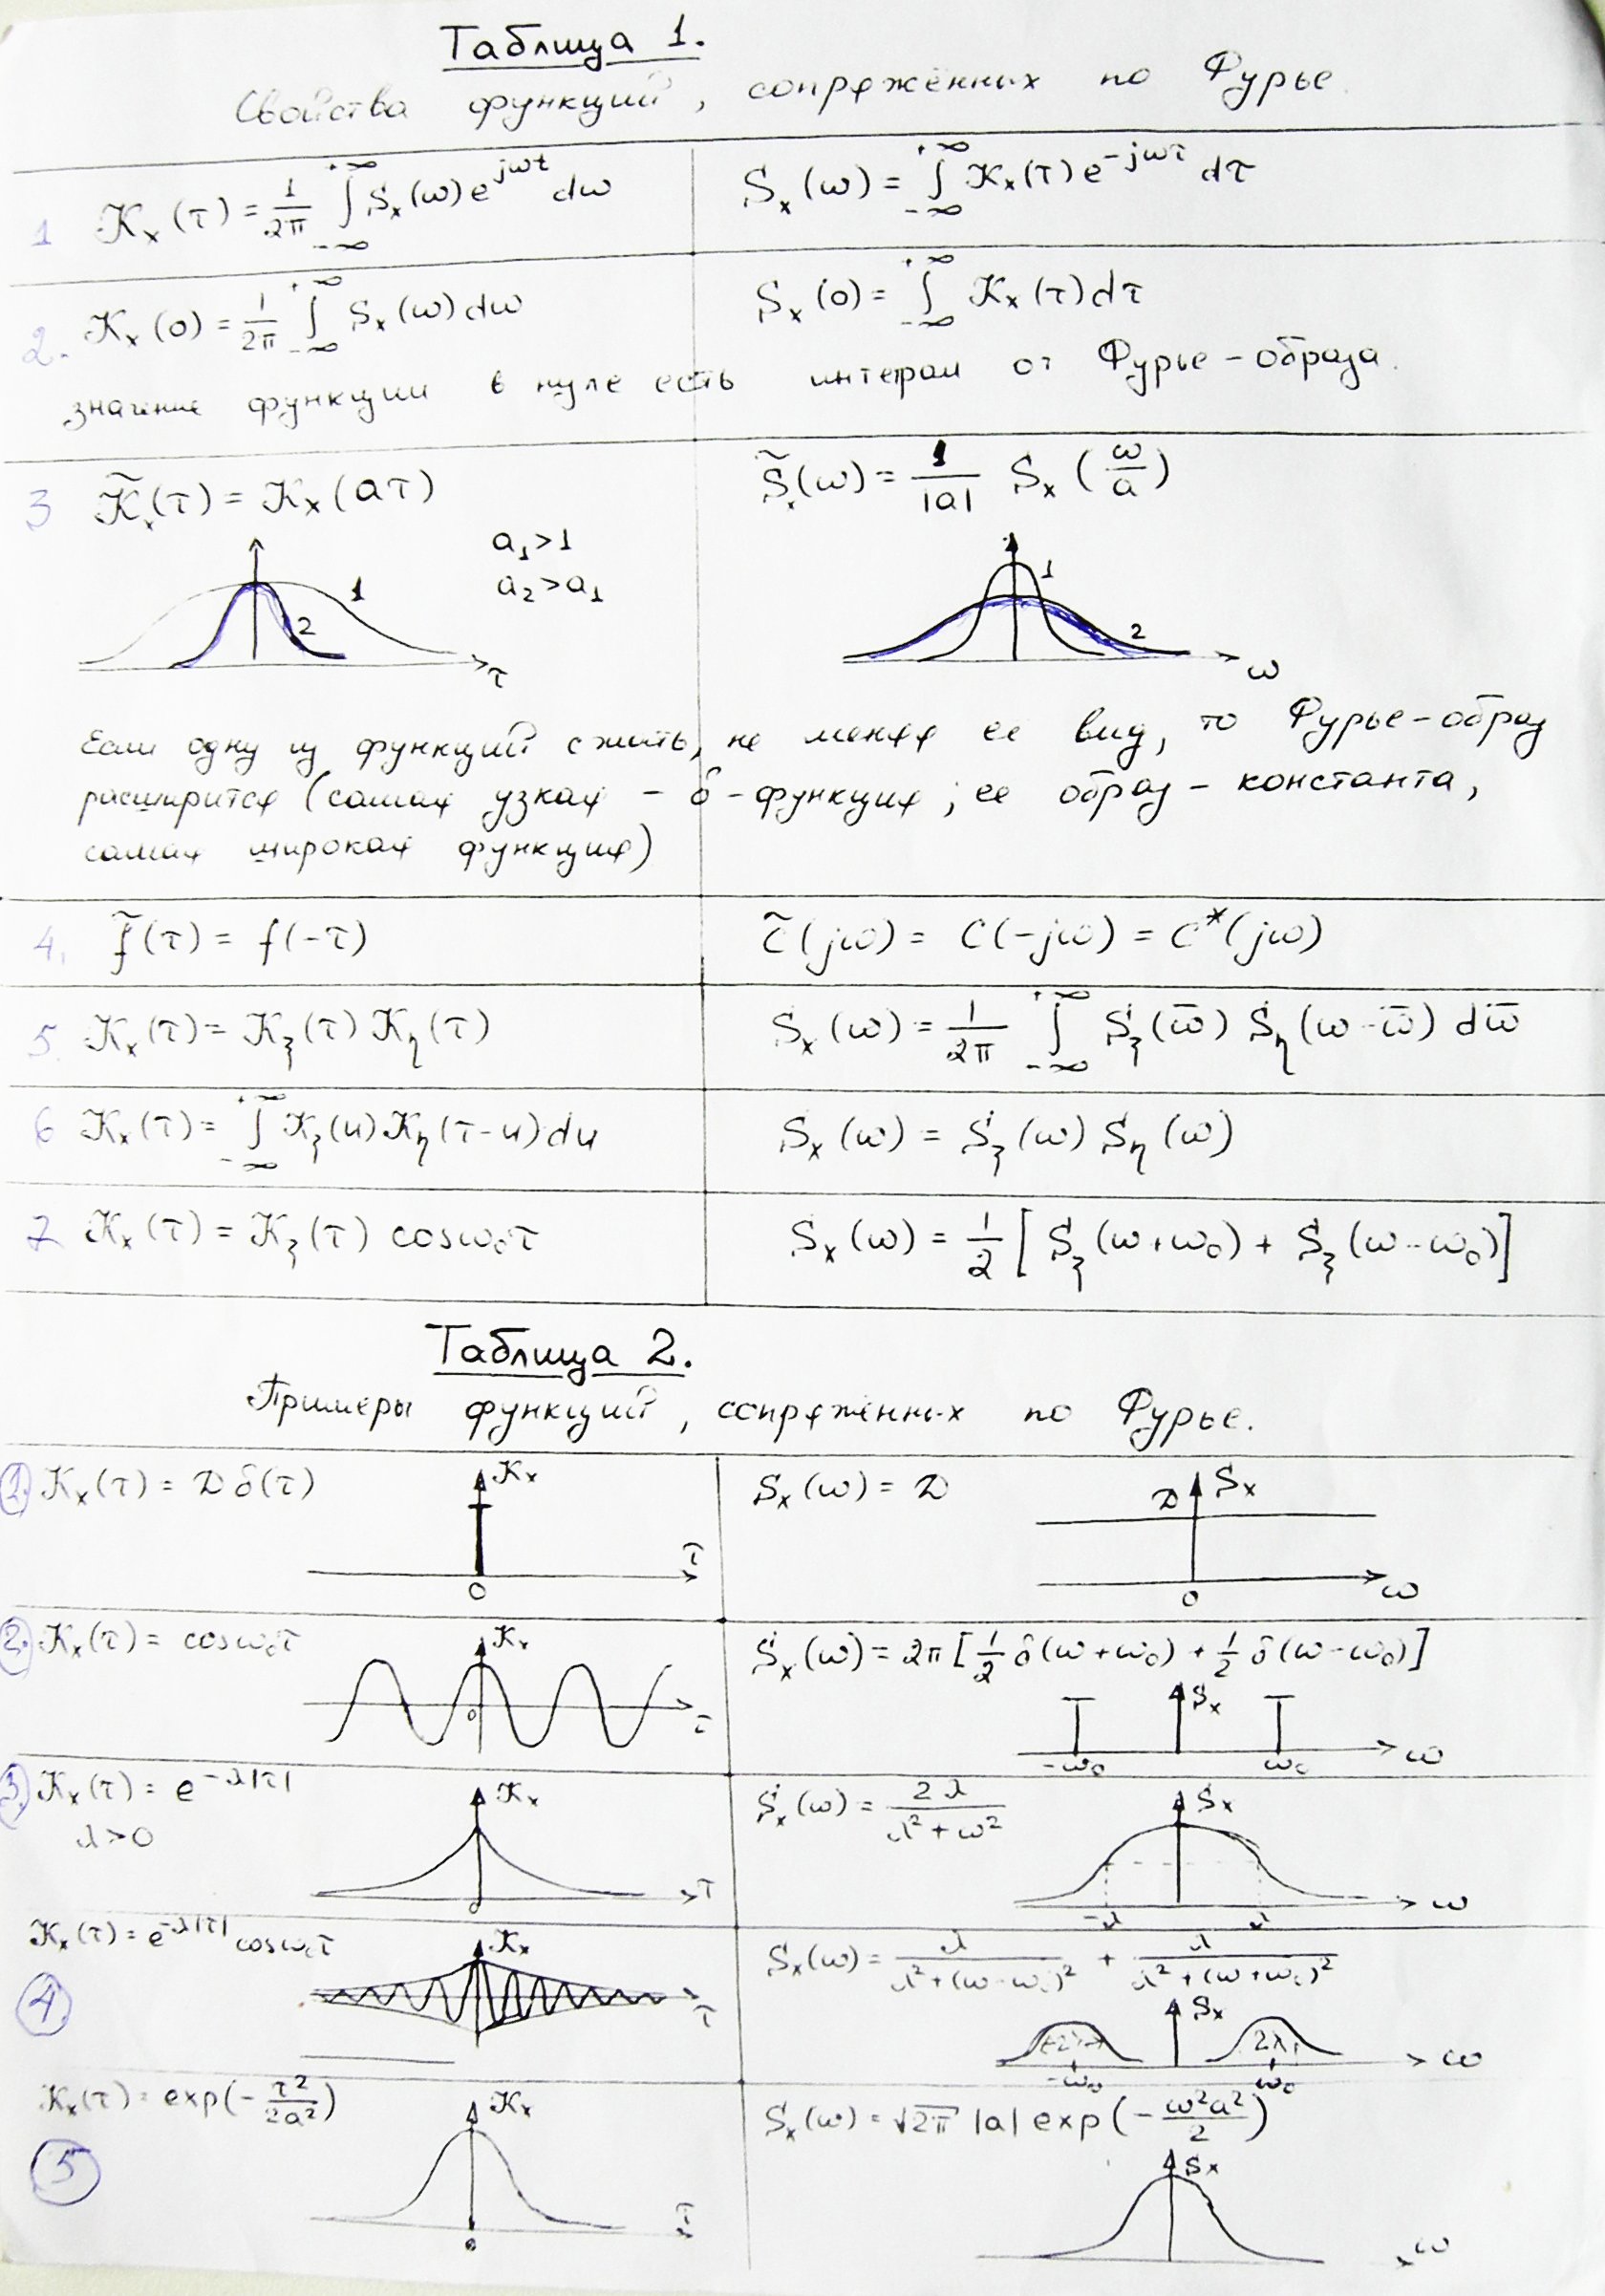 Таблица 1.
Свойства функций, сопряжённых по Фурье.
1 Kₓ(τ) = 1/2π ∫₋∞⁺∞ Sₓ(ω) e^{jωt} dω   Sₓ(ω) = ∫₋∞⁺∞ Kₓ(τ) e^{-jωτ} dτ
2. Kₓ(0) = 1/2π ∫₋∞⁺∞ Sₓ(ω) dω   Sₓ(0) = ∫₋∞⁺∞ Kₓ(τ) dτ
значение функции в нуле есть интеграл от Фурье-образа.
3 K̃ₓ(τ) = Kₓ(aτ)   S̃ₓ(ω) = 1/|a| Sₓ(ω/a)
a₁>1
a₂>a₁
1 2 τ   1 2 ω
Если одну из функций сжать, не меняя ее вид, то Фурье-образ
расширится (самая узкая - δ-функция; ее образ - константа,
самая широкая функция)
4. f̃(τ) = f(-τ)   C̃(jω) = C(-jω) = C*(jω)
5. Kₓ(τ) = K_ξ(τ) K_η(τ)   Sₓ(ω) = 1/2π ∫₋∞⁺∞ S_ξ(ω̄) S_η(ω-ω̄) dω̄
6 Kₓ(τ) = ∫₋∞⁺∞ K_ξ(u) K_η(τ-u) du   Sₓ(ω) = S_ξ(ω) S_η(ω)
7. Kₓ(τ) = K_ξ(τ) cosω₀τ   Sₓ(ω) = 1/2 [S_ξ(ω+ω₀) + S_ξ(ω-ω₀)]
Таблица 2.
Примеры функций, сопряжённых по Фурье.
1. Kₓ(τ) = D δ(τ)   Kₓ τ 0   Sₓ(ω) = D   D Sₓ 0 ω
2. Kₓ(τ) = cosω₀τ   Kₓ 0 τ   Sₓ(ω) = 2π [1/2 δ(ω+ω₀) + 1/2 δ(ω-ω₀)]
Sₓ -ω₀ ω₀ ω
3. Kₓ(τ) = e^{-λ|τ|}   Kₓ τ 0   Sₓ(ω) = 2λ/(λ²+ω²)   Sₓ -λ λ ω
λ>0
Kₓ(τ) = e^{-λ|τ|} cosω₀τ   Kₓ τ   Sₓ(ω) = λ/(λ²+(ω-ω₀)²) + λ/(λ²+(ω+ω₀)²)
4   Sₓ 2λ 2λ -ω₀ ω₀ ω
Kₓ(τ) = exp(-τ²/2a²)   Kₓ τ 0   Sₓ(ω) = √2π |a| exp(-ω²a²/2)
5   Sₓ ω